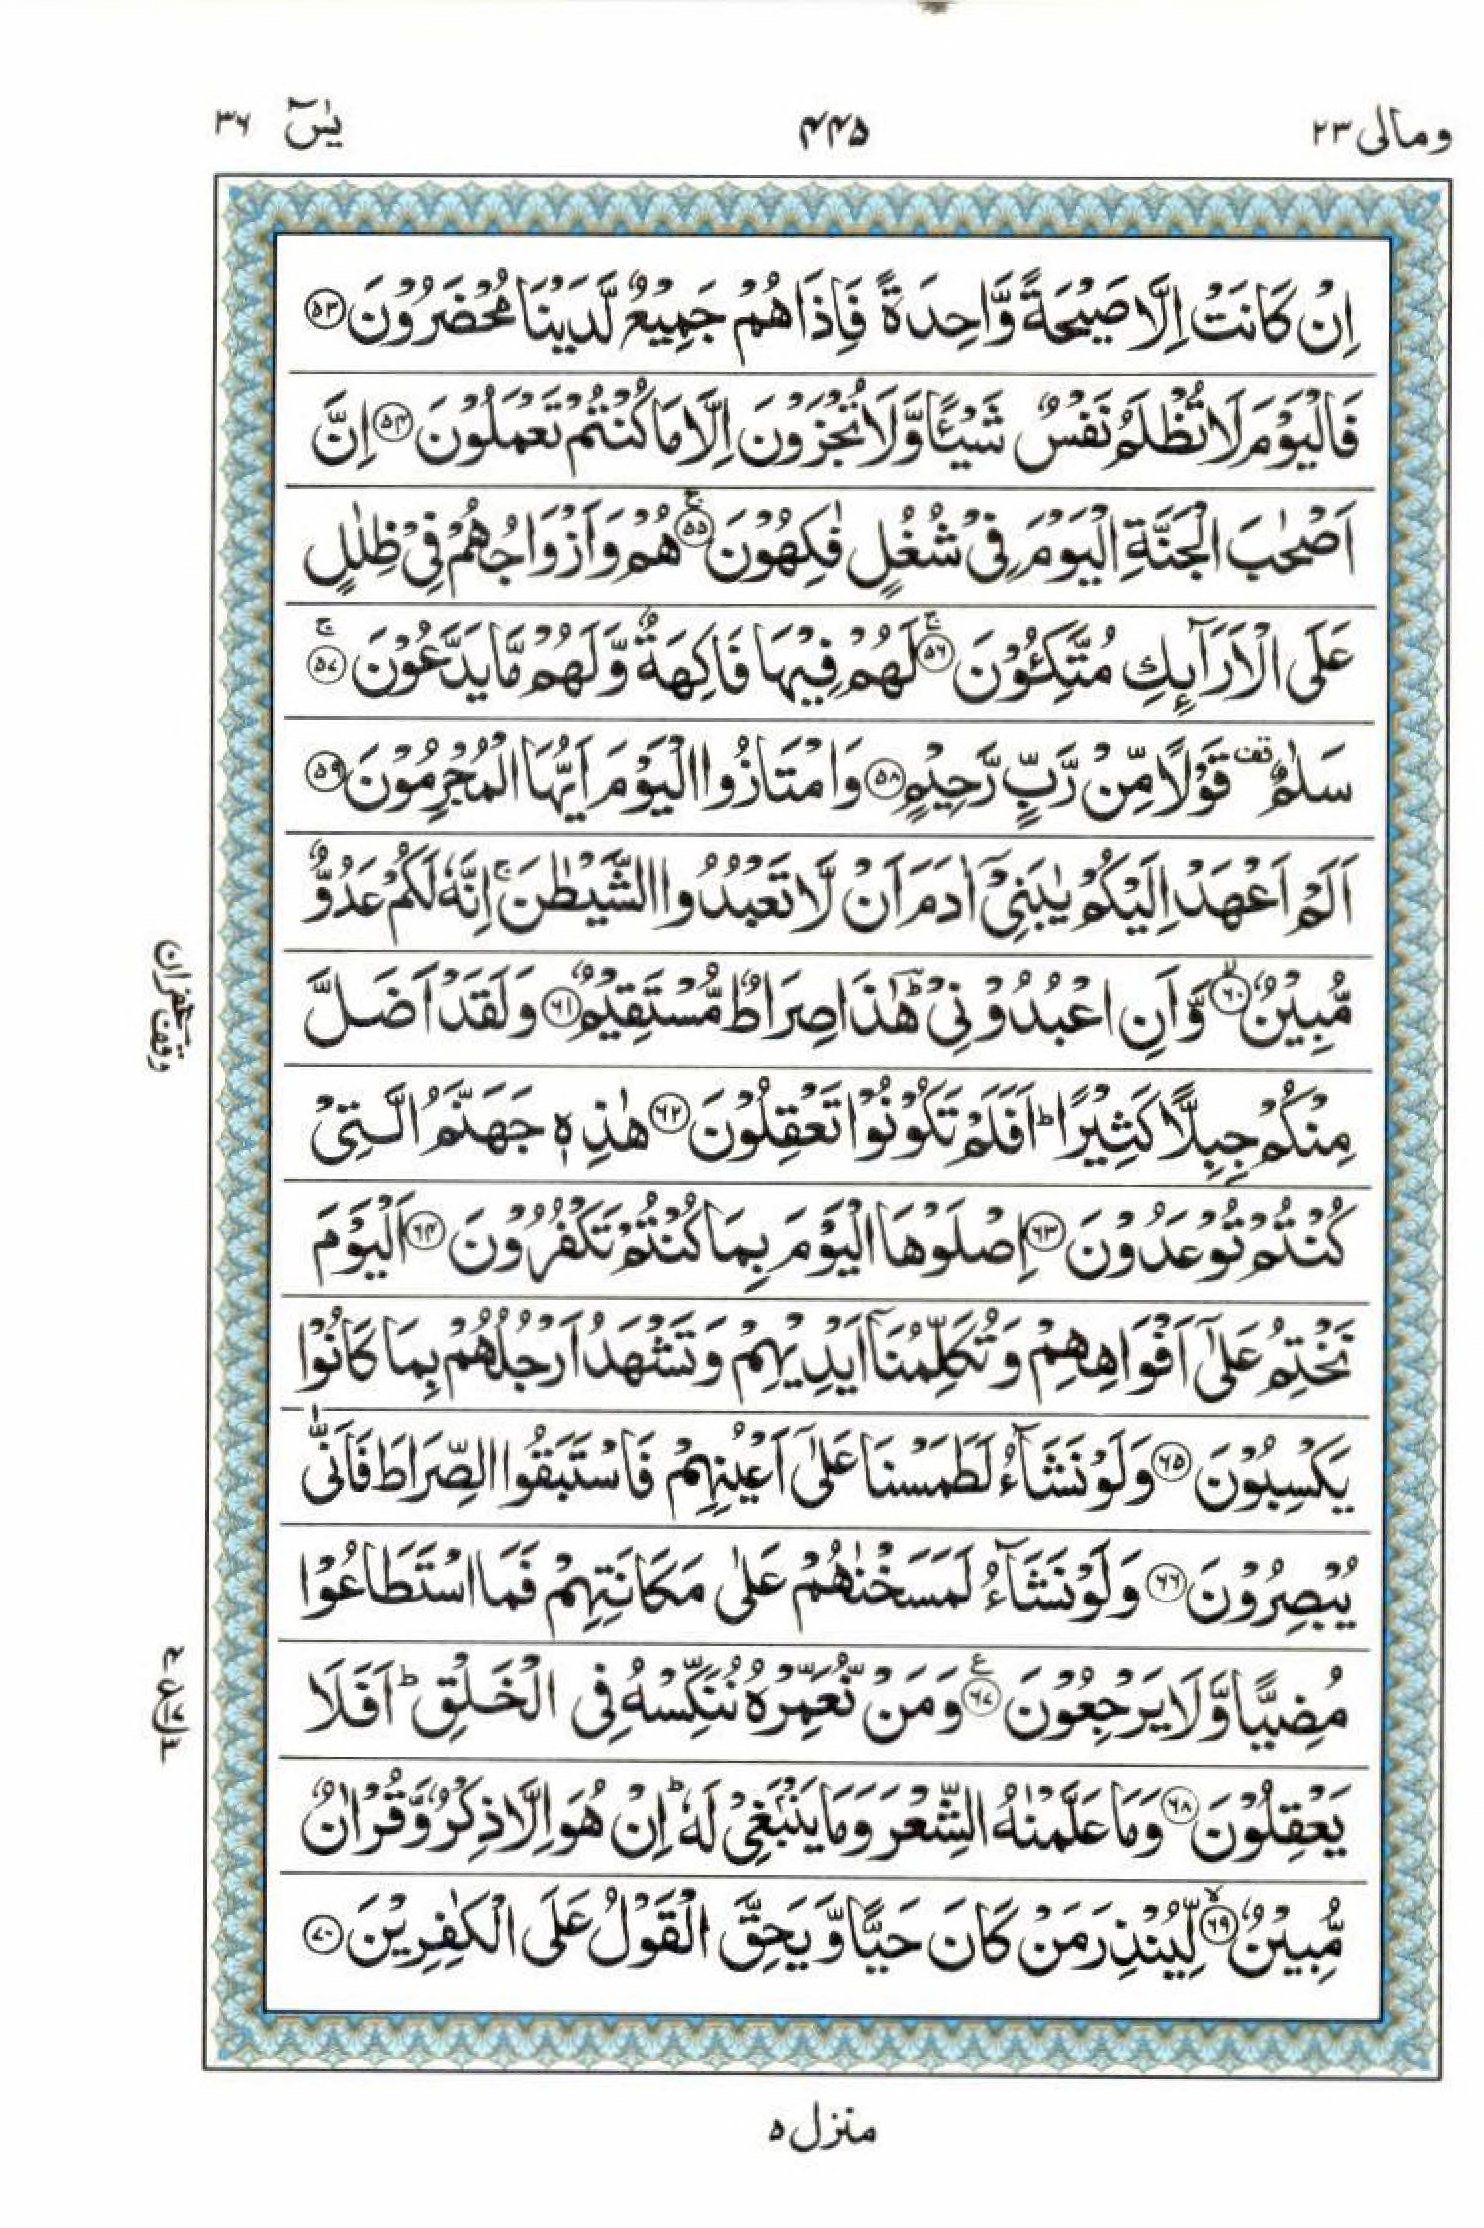 ومالی ۲۳
۴۴۵
یٰسٓ ۳۶
اِنْ كَانَتْ اِلَّا صَیْحَةً وَّاحِدَةً فَاِذَا هُمْ جَمِیْعٌ لَّدَیْنَا مُحْضَرُوْنَ ۝۵۳
فَالْیَوْمَ لَا تُظْلَمُ نَفْسٌ شَیْـًٔا وَّلَا تُجْزَوْنَ اِلَّا مَا كُنْتُمْ تَعْمَلُوْنَ ۝۵۴ اِنَّ
اَصْحٰبَ الْجَنَّةِ الْیَوْمَ فِیْ شُغُلٍ فٰكِهُوْنَ ۝۵۵ۚ هُمْ وَاَزْوَاجُهُمْ فِیْ ظِلٰلٍ
عَلَی الْاَرَآىِٕكِ مُتَّكِـُٔوْنَ ۝۵۶ۚ لَهُمْ فِیْهَا فَاكِهَةٌ وَّلَهُمْ مَّا یَدَّعُوْنَ ۝۵۷ۚ
سَلٰمٌ قف قَوْلًا مِّنْ رَّبٍّ رَّحِیْمٍ ۝۵۸ وَامْتَازُوا الْیَوْمَ اَیُّهَا الْمُجْرِمُوْنَ ۝۵۹
اَلَمْ اَعْهَدْ اِلَیْكُمْ یٰبَنِیْۤ اٰدَمَ اَنْ لَّا تَعْبُدُوا الشَّیْطٰنَ ۚ اِنَّهٗ لَكُمْ عَدُوٌّ
مُّبِیْنٌ ۝۶۰ۙ وَّاَنِ اعْبُدُوْنِیْ ؔؕ هٰذَا صِرَاطٌ مُّسْتَقِیْمٌ ۝۶۱ وَلَقَدْ اَضَلَّ
وقف غفران
مِنْكُمْ جِبِلًّا كَثِیْرًا ؕ اَفَلَمْ تَكُوْنُوْا تَعْقِلُوْنَ ۝۶۲ هٰذِهٖ جَهَنَّمُ الَّتِیْ
كُنْتُمْ تُوْعَدُوْنَ ۝۶۳ اِصْلَوْهَا الْیَوْمَ بِمَا كُنْتُمْ تَكْفُرُوْنَ ۝۶۴ اَلْیَوْمَ
نَخْتِمُ عَلٰۤی اَفْوَاهِهِمْ وَتُكَلِّمُنَاۤ اَیْدِیْهِمْ وَتَشْهَدُ اَرْجُلُهُمْ بِمَا كَانُوْا
یَكْسِبُوْنَ ۝۶۵ وَلَوْ نَشَآءُ لَطَمَسْنَا عَلٰۤی اَعْیُنِهِمْ فَاسْتَبَقُوا الصِّرَاطَ فَاَنّٰی
یُبْصِرُوْنَ ۝۶۶ وَلَوْ نَشَآءُ لَمَسَخْنٰهُمْ عَلٰی مَكَانَتِهِمْ فَمَا اسْتَطَاعُوْا
مُضِیًّا وَّلَا یَرْجِعُوْنَ ۝۶۷ع وَمَنْ نُّعَمِّرْهُ نُنَكِّسْهُ فِی الْخَلْقِ ؕ اَفَلَا
یَعْقِلُوْنَ ۝۶۸ وَمَا عَلَّمْنٰهُ الشِّعْرَ وَمَا یَنْۢبَغِیْ لَهٗ ؕ اِنْ هُوَ اِلَّا ذِكْرٌ وَّقُرْاٰنٌ
مُّبِیْنٌ ۝۶۹ۙ لِّیُنْذِرَ مَنْ كَانَ حَیًّا وَّیَحِقَّ الْقَوْلُ عَلَی الْكٰفِرِیْنَ ۝۷۰
منزل ۵